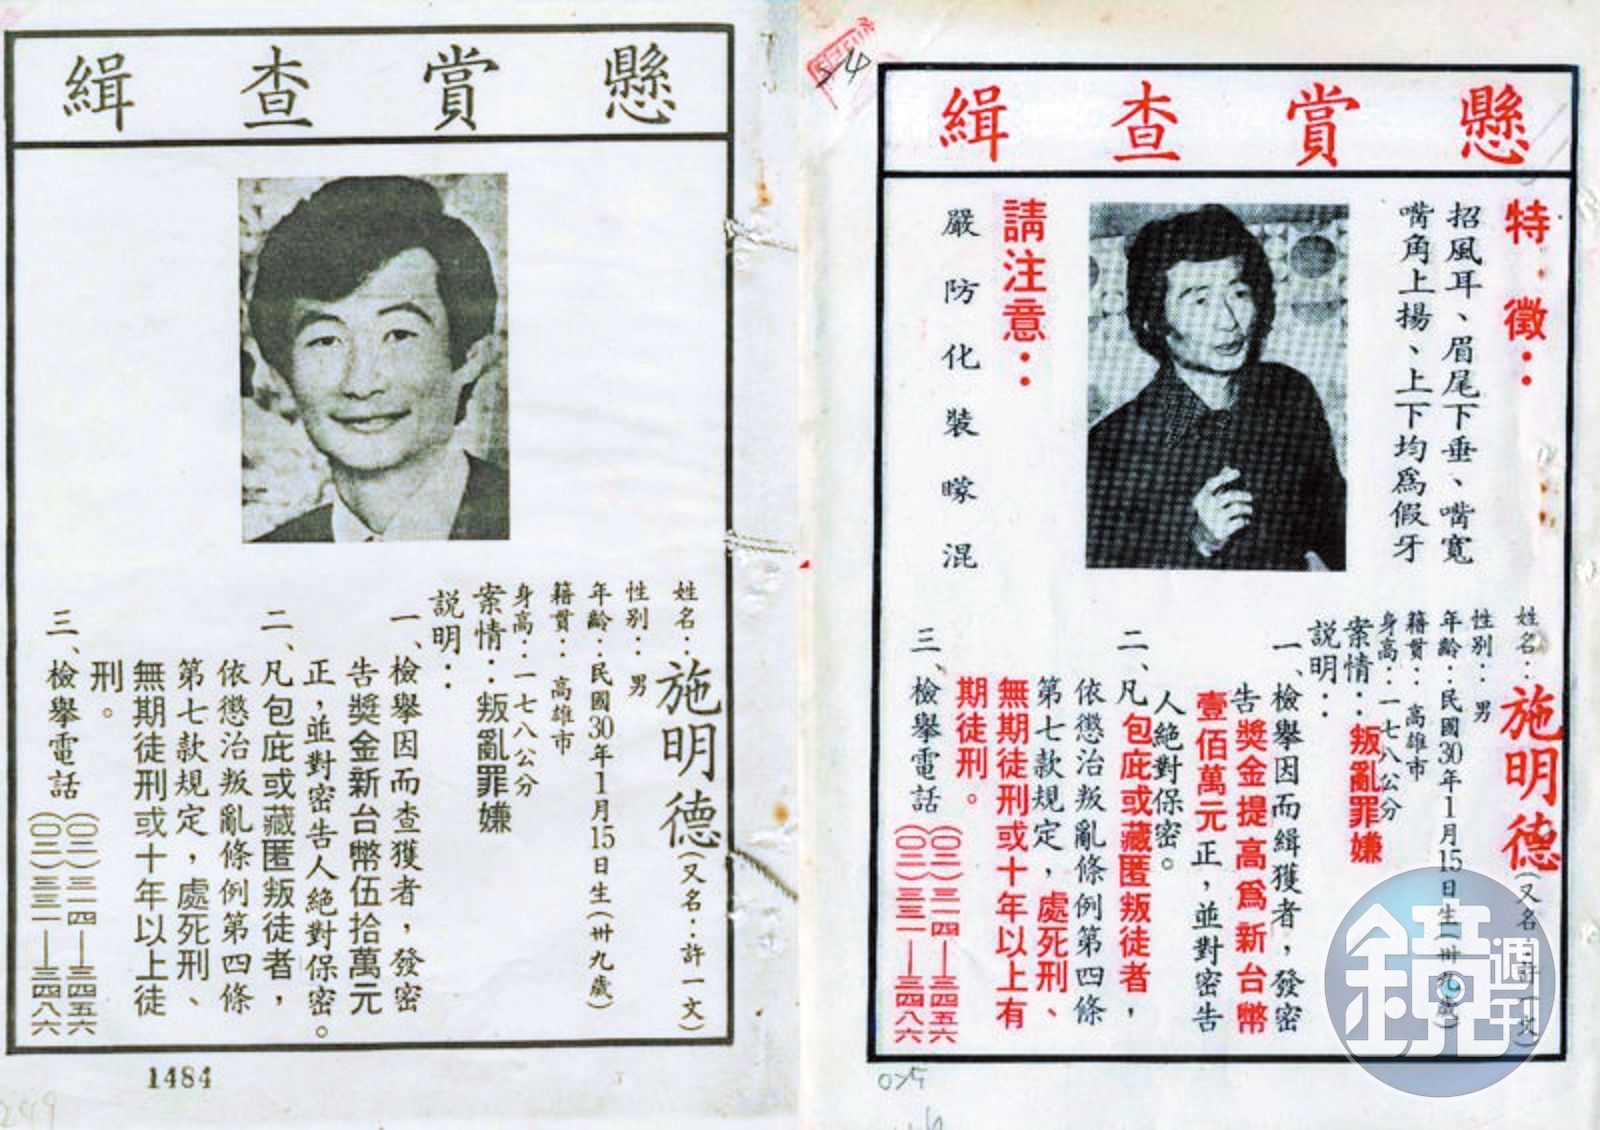 懸賞查緝
姓名：施明德（又名：許一文）
性別：男
年齡：民國30年1月15日生（卅九歲）
籍貫：高雄市
身高：一七八公分
案情：叛亂罪嫌
說明：
一、檢舉因而查獲者，發密
告獎金新台幣伍拾萬元
正，並對密告人絕對保密。
二、凡包庇或藏匿叛徒者，
依懲治叛亂條例第四條
第七款規定，處死刑、
無期徒刑或十年以上徒
刑。
三、檢舉電話（〇二）三一四—三四五六
（〇二）三三一—三四八六
1484
249
54
懸賞查緝
特徵：
招風耳、眉尾下垂、嘴寬
嘴角上揚、上下均為假牙
請注意：
嚴防化裝矇混
姓名：施明德（又名：許一文）
性別：男
年齡：民國30年1月15日生（卅九歲）
籍貫：高雄市
身高：一七八公分
案情：叛亂罪嫌
說明：
一、檢舉因而緝獲者，發密
告獎金提高為新台幣
壹佰萬元正，並對密告
人絕對保密。
二、凡包庇或藏匿叛徒者，
依懲治叛亂條例第四條
第七款規定，處死刑、
無期徒刑或十年以上有
期徒刑。
三、檢舉電話（〇二）三一四—三四五六
（〇二）三三一—三四八六
鏡週刊